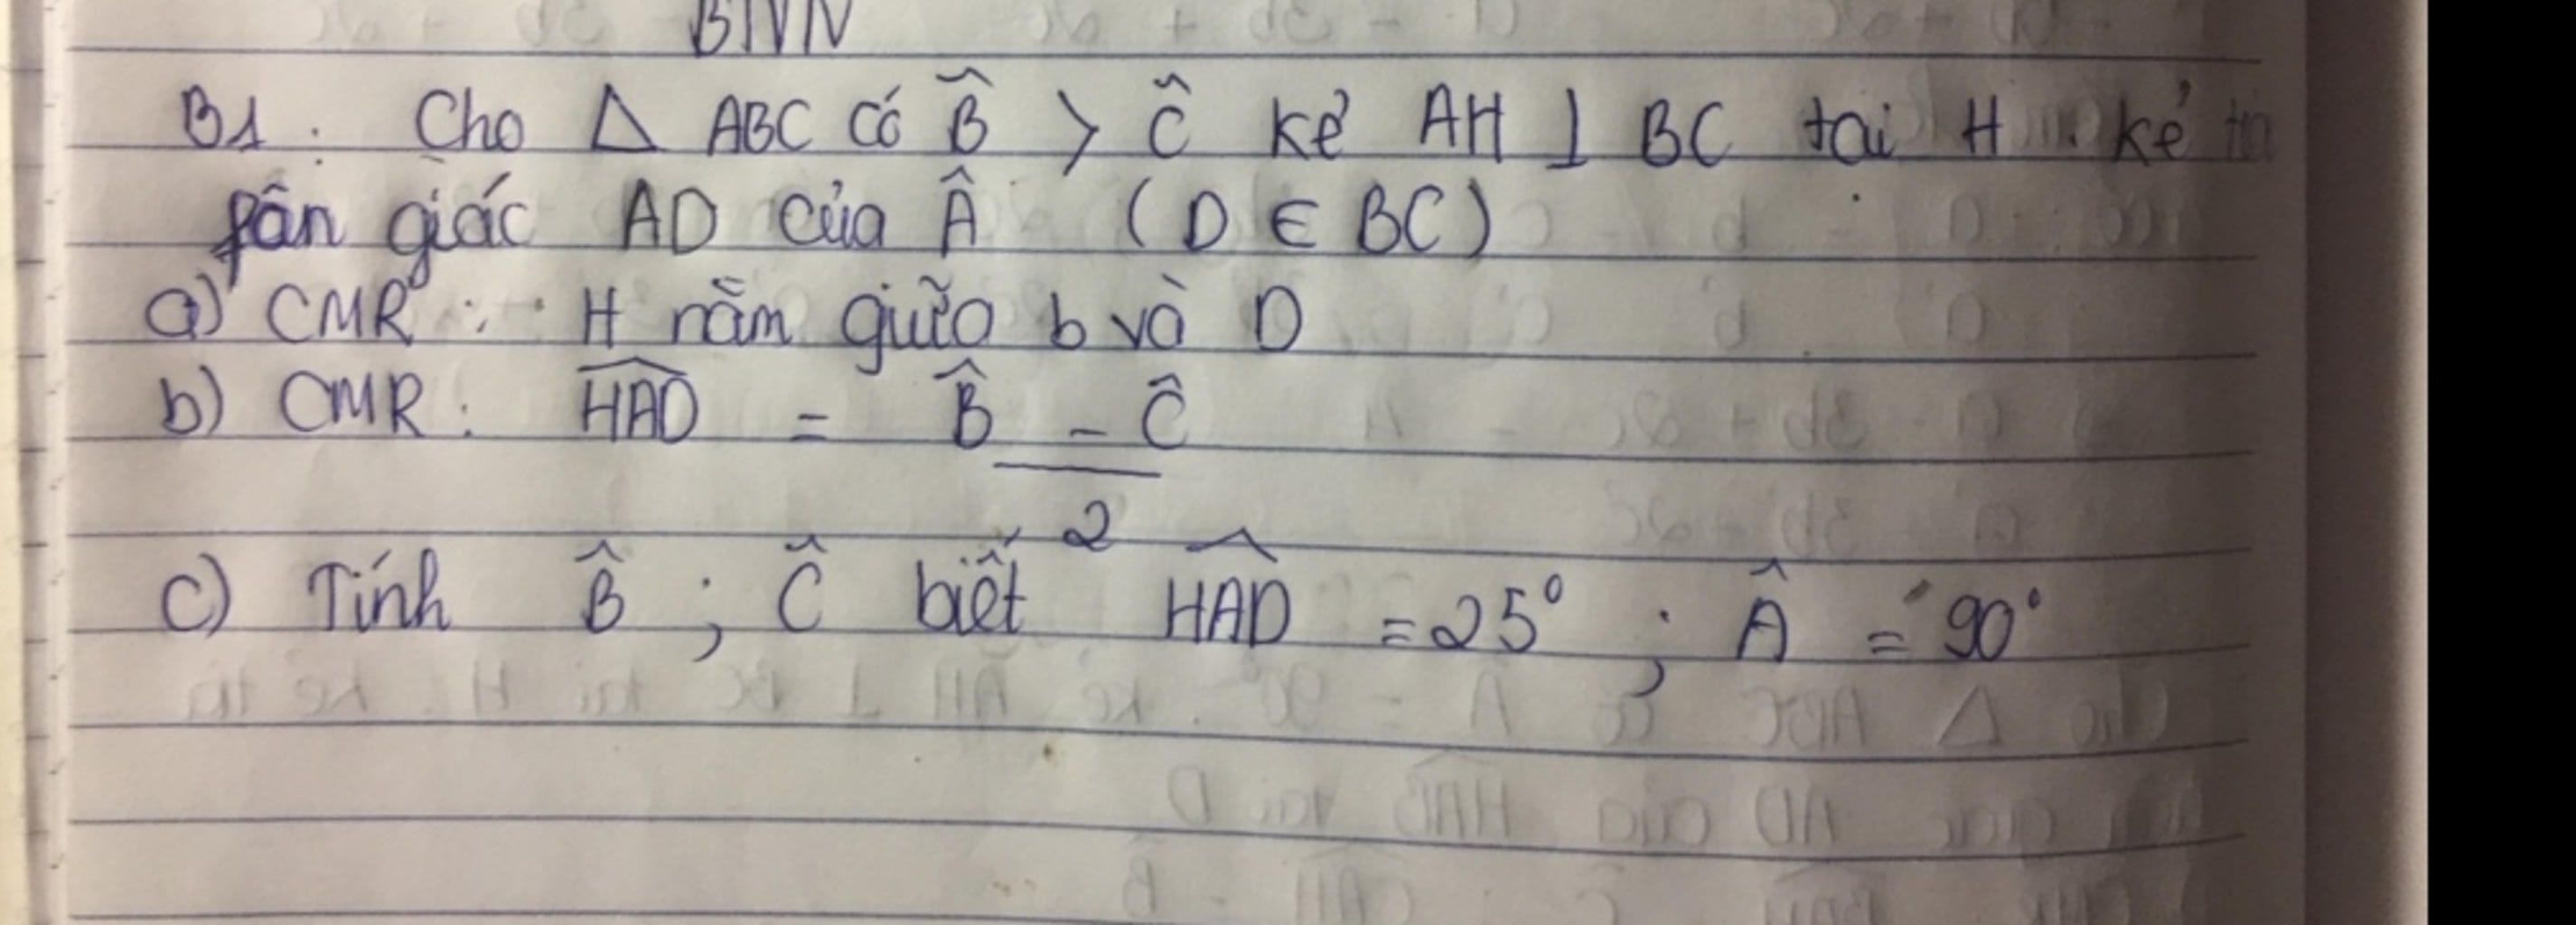 BTVN
B1. Cho △ ABC có B̂ > Ĉ kẻ AH ⊥ BC tại H. kẻ tia
fân giác AD của Â (D ∈ BC)
a) CMR: H nằm giữa b và D
b) CMR: HAD̂ = B̂ - Ĉ
2
c) Tính B̂ ; Ĉ biết HAD̂ = 25° ; Â = 90°